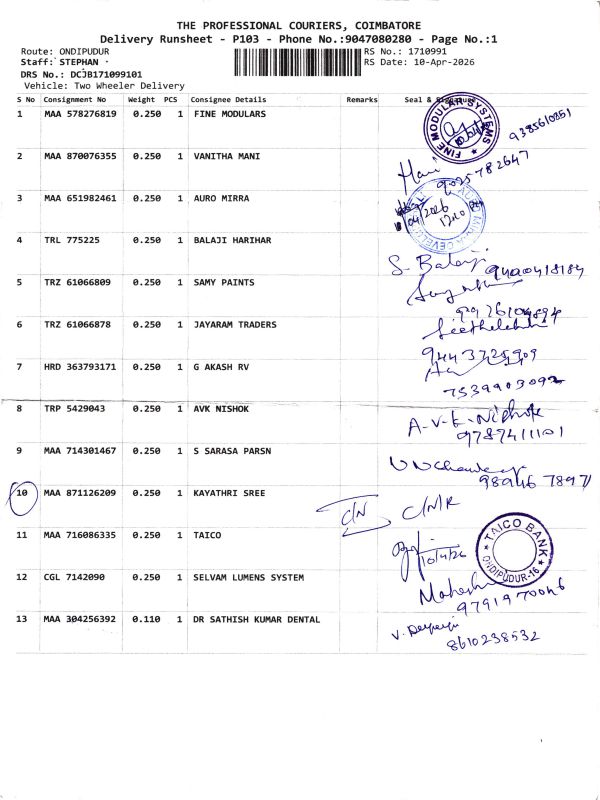 THE PROFESSIONAL COURIERS, COIMBATORE
Delivery Runsheet - P103 - Phone No.:9047080280 - Page No.:1
Route: ONDIPUDUR RS No.: 1710991
Staff: STEPHAN RS Date: 10-Apr-2026
DRS No.: DCJB171099101
Vehicle: Two Wheeler Delivery
S No Consignment No Weight PCS Consignee Details Remarks Seal & Signature
1 MAA 578276819 0.250 1 FINE MODULARS FINE MODULAR SYSTEMS 9385610851
2 MAA 870076355 0.250 1 VANITHA MANI 9025782647
3 MAA 651982461 0.250 1 AURO MIRRA
4 TRL 775225 0.250 1 BALAJI HARIHAR S. Balaji
5 TRZ 61066809 0.250 1 SAMY PAINTS
6 TRZ 61066878 0.250 1 JAYARAM TRADERS
7 HRD 363793171 0.250 1 G AKASH RV 7539903092
8 TRP 5429043 0.250 1 AVK NISHOK A-V-K-Nishok
9787411101
9 MAA 714301467 0.250 1 S SARASA PARSN
10 MAA 871126209 0.250 1 KAYATHRI SREE C/N C/N/R
11 MAA 716086335 0.250 1 TAICO 10/4/26 TAICO BANK ONDIPUDUR-16
12 CGL 7142090 0.250 1 SELVAM LUMENS SYSTEM Mahesh
9791970046
13 MAA 304256392 0.110 1 DR SATHISH KUMAR DENTAL
8610238532